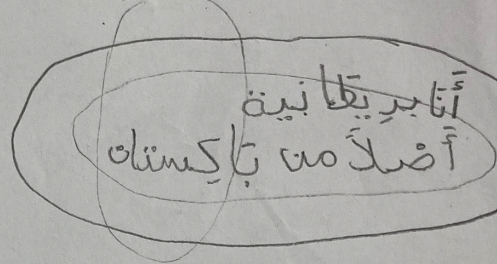 أَنَا بريطانية
أَصْلاً من باكِستان